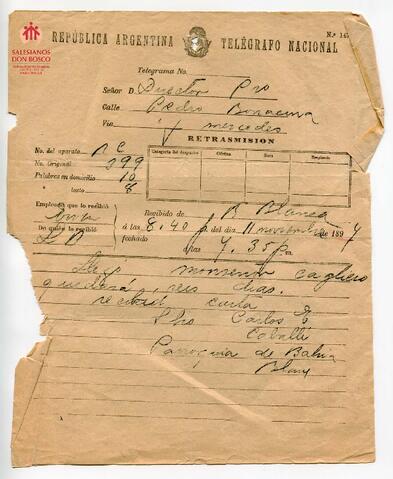 SALESIANOS
DON BOSCO
REPÚBLICA ARGENTINA TELÉGRAFO NACIONAL
N.º 14
Telegrama No.
Señor D. Director Pio
Calle Pedro Bonacina
Via y mercedes
RETRASMISION
Categoría del despacho Oficina Hora Empleado
No. del aparato B C
No. Original 299
Palabras en domicilio 10
texto 8
Empleado que lo recibió
De quien lo recibió
Recibido de B Blanca
á las 8.40 p del dia 11 noviembre de 189
fechado á las 7.35 p
monseñor cagliero
quedará seis dias.
recibirá carta
Carlos E
Cavalli
Parroquia de Bahia
Blanc